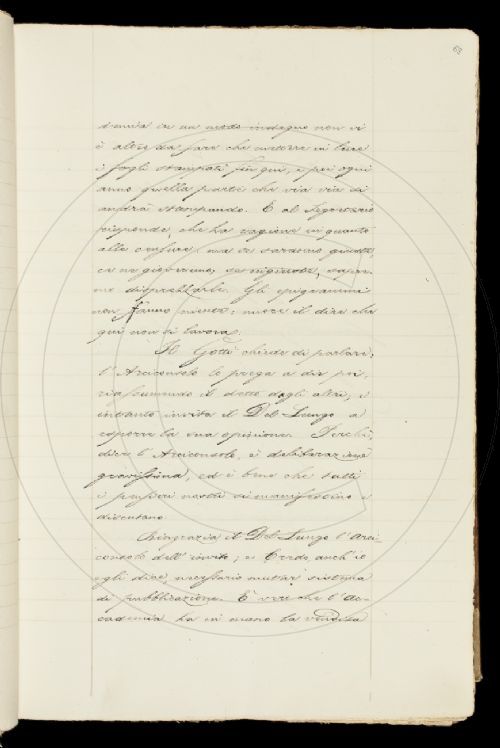 63
demia in un modo indegno non vi
è altro da fare che mettere in luce
i fogli stampati fin qui, e poi ogni
anno quella parte che via via si
andrà stampando. E al Segretario
risponde, che ha ragione in quanto
alle censure, ma se saranno giuste,
ce ne gioveremo; se ingiuste, sapre-
mo disprezzarle. Gli epigrammi
non fanno niente: nuoce il dire che
qui non si lavora.
Il Gotti chiede di parlare;
l'Arciconsolo lo prega a dir poi,
riassumendo il detto dagli altri, e
intanto invita il Del Lungo a
esporre la sua opinione. Perchè,
dice l'Arciconsolo, è deliberazione
gravissima, ed è bene che tutti
i pensieri nostri si manifestino e
discutano.
Ringrazia il Del Lungo l'Arci-
consolo dell'invito; e Crede, anch'io
egli dice, necessario mutar sistema
di pubblicazione. E vero che l'Ac-
cademia ha in mano la vendita